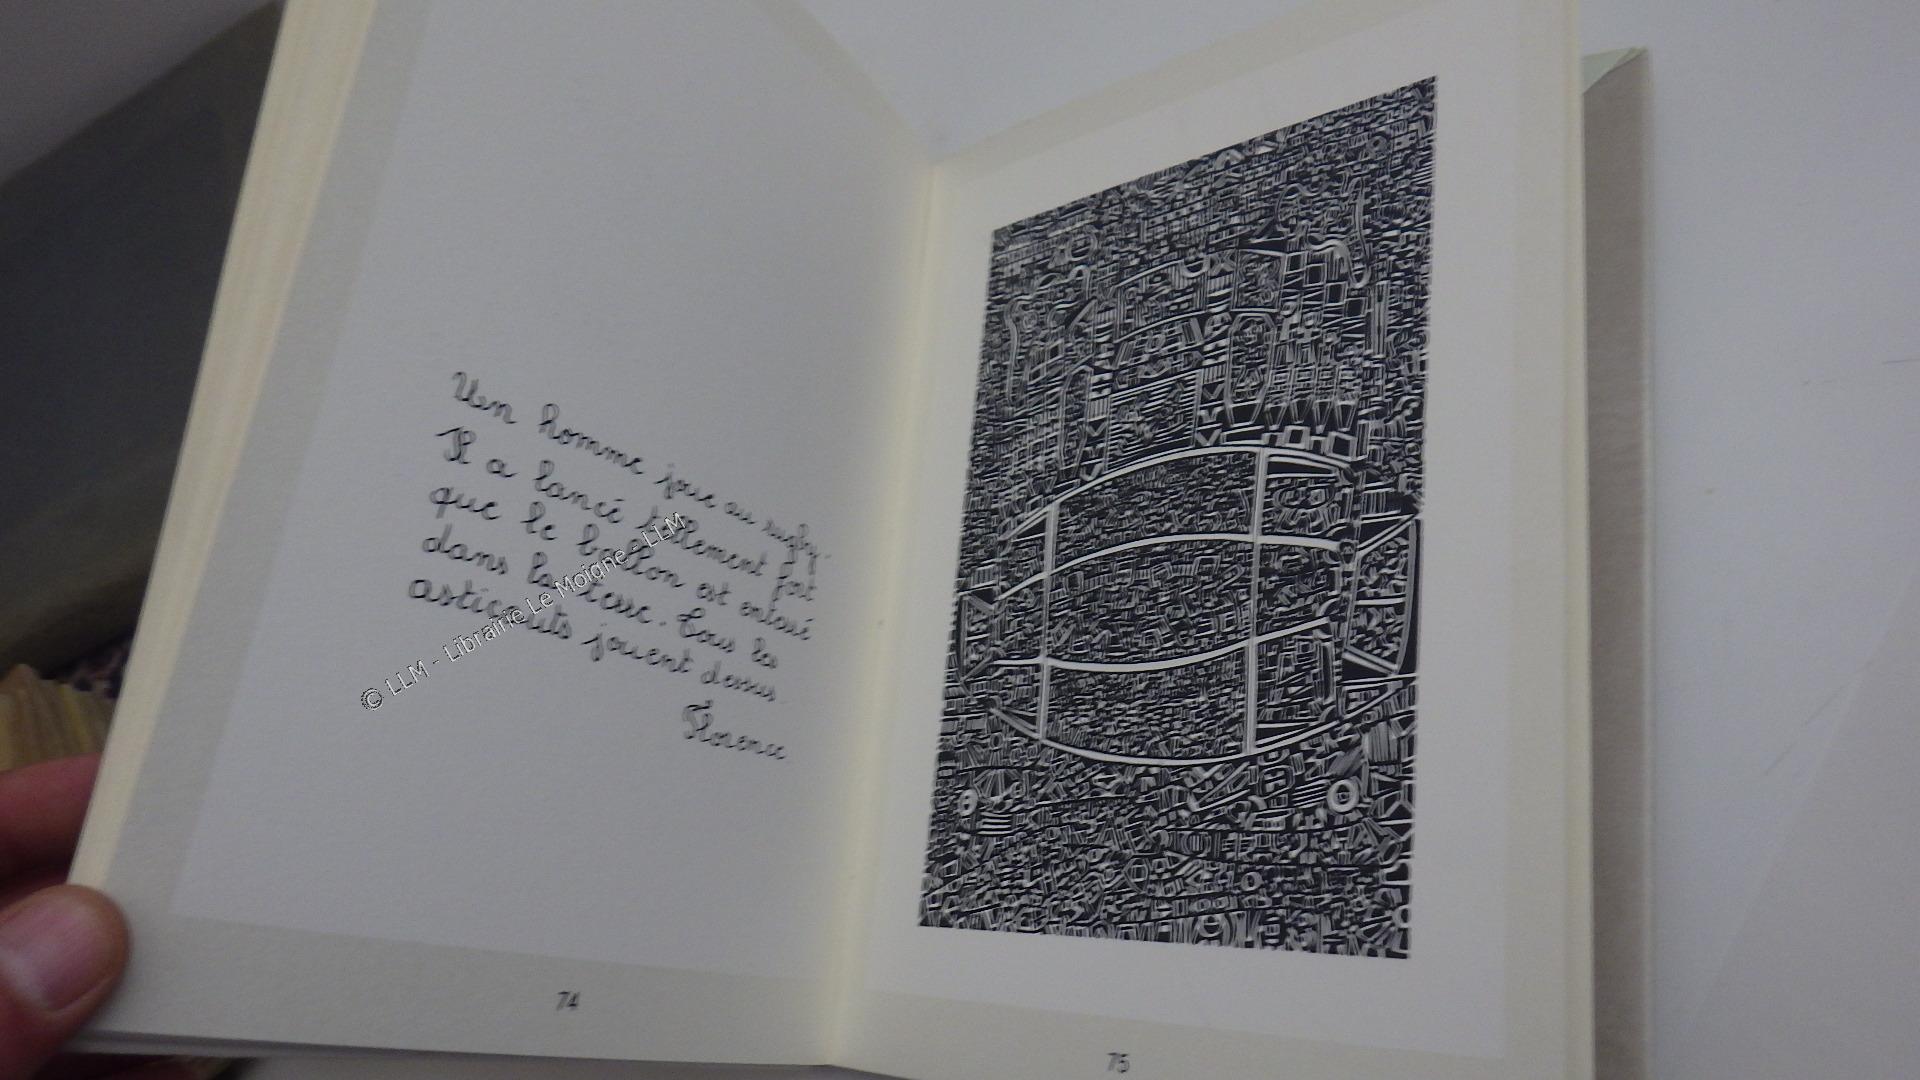 Un homme joue au rugby.
Il a lancé tellement fort
que le ballon est enterré
dans la terre. Tous les
asticots jouent dessus.
Florence
© LLM - Librairie Le Moigne - LLM
74
75